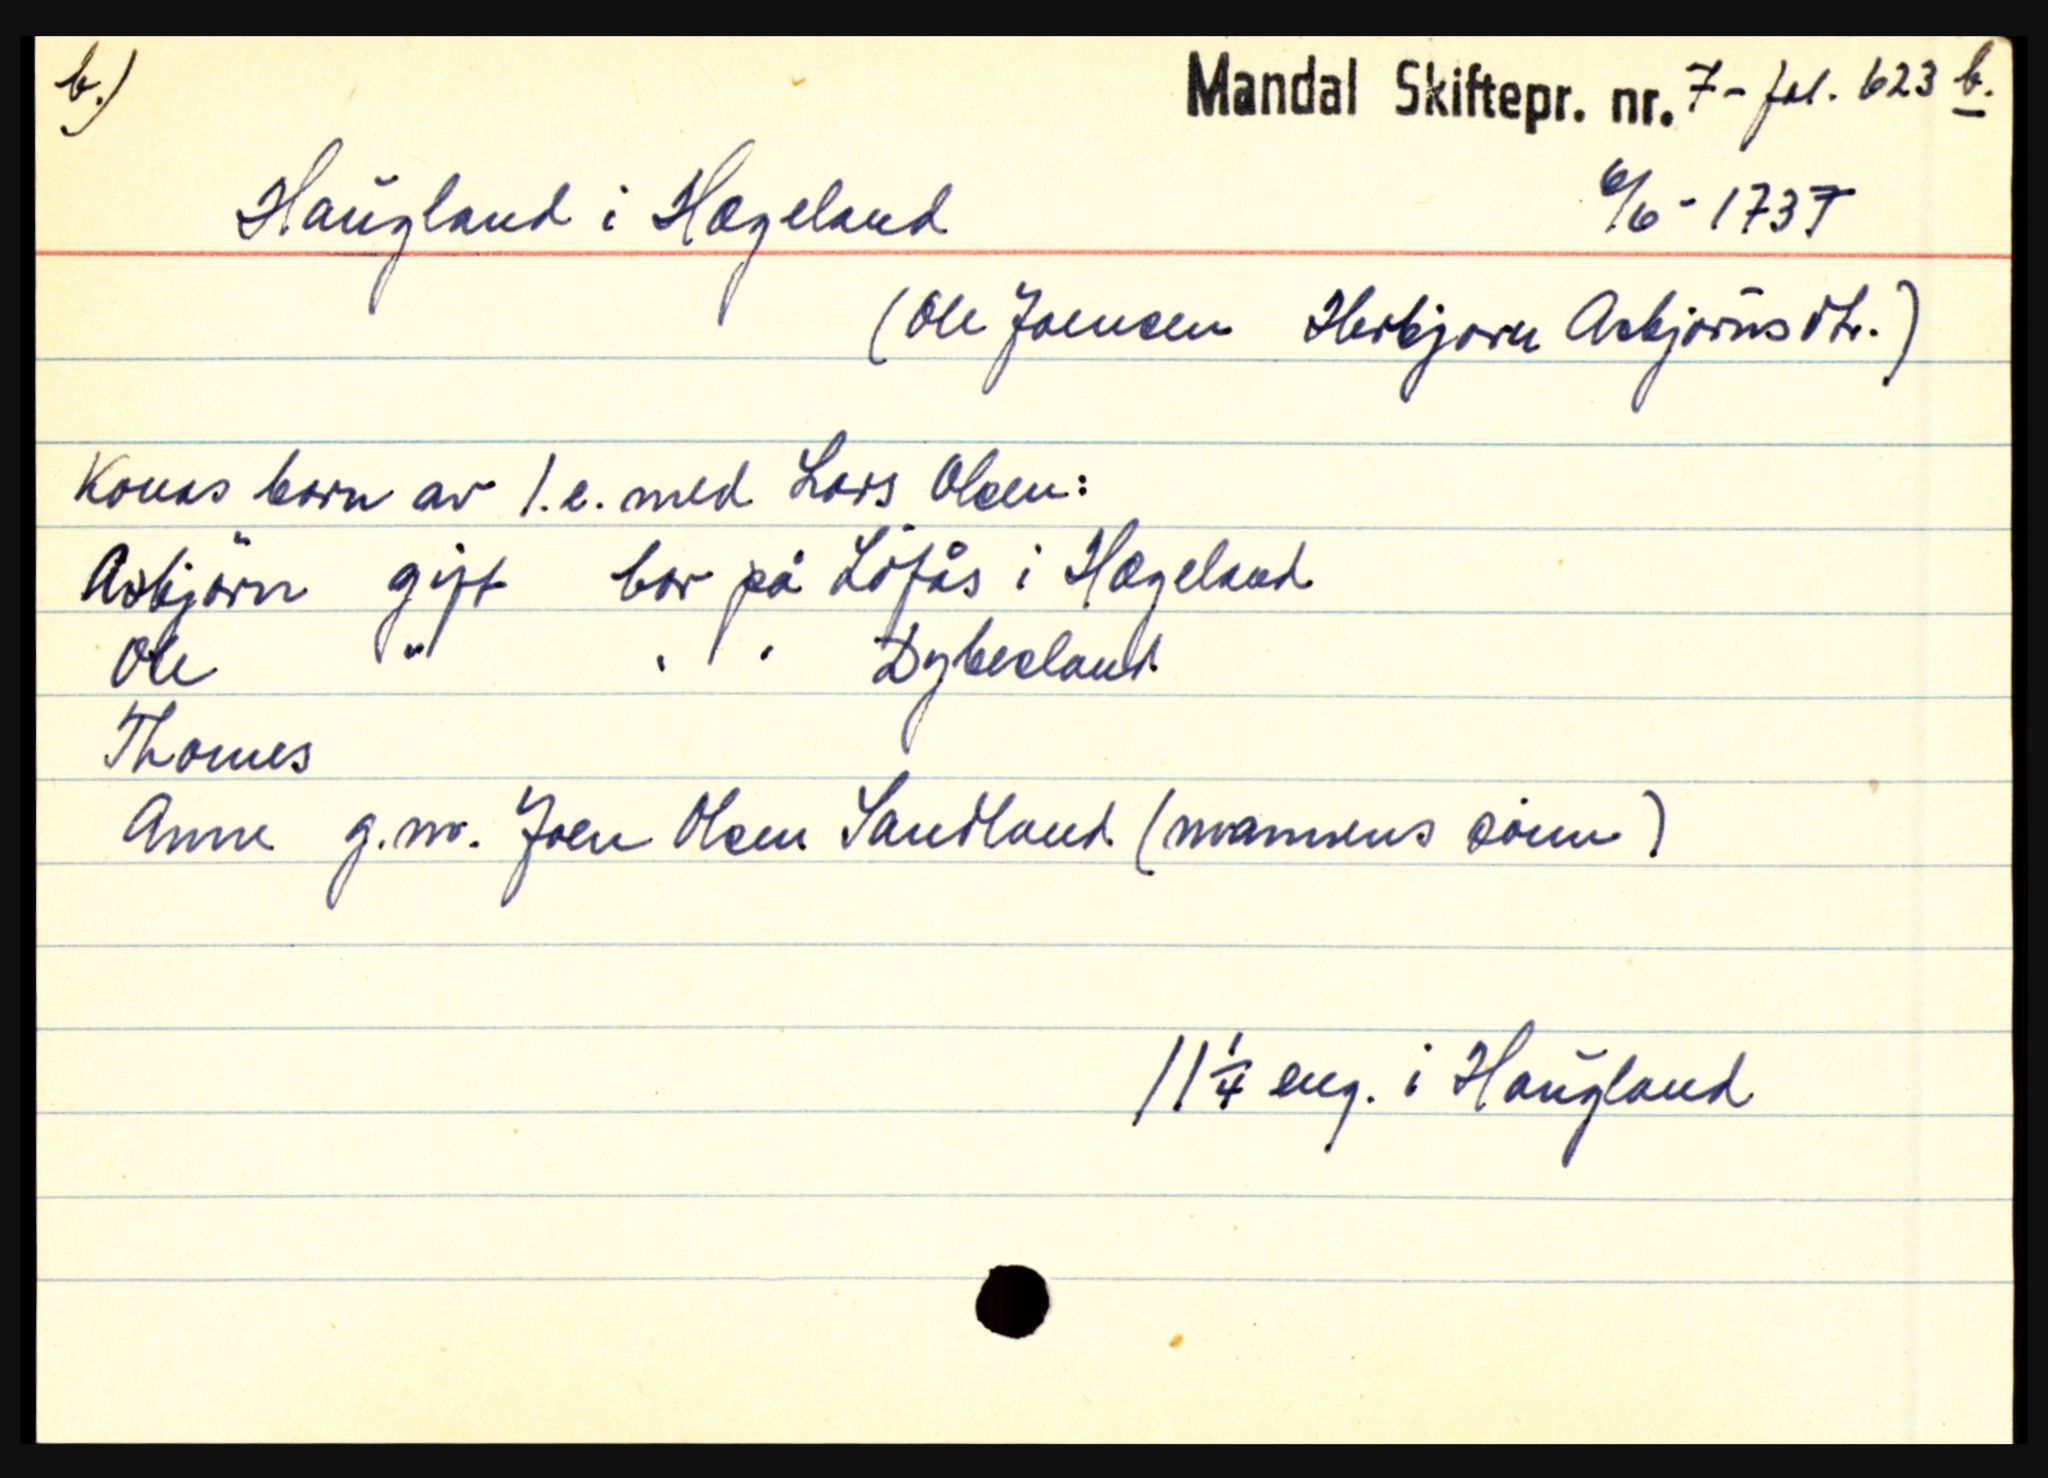 b.) Mandal Skiftepr. nr. 7 - fol. 623 b.
Haugland i Hægeland 6/6 - 1737
(Ole Joensen Herbjørn Asbjørnsdtr.)
Konas børn av 1.e. med Lars Olsen:
Asbjörn gift bor på Löfås i Hægeland
Ole " " " Dybesland
Thomes
Anne g.m. Joen Olsen Sandland (mannens sönn)
11 1/4 eng. i Haugland